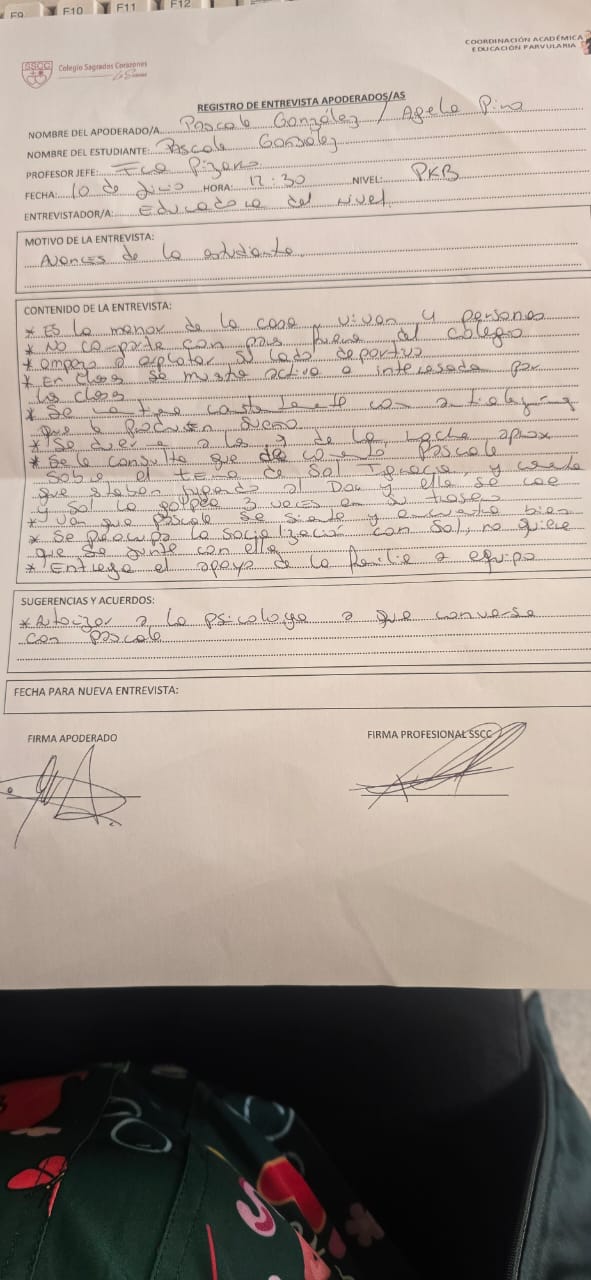 F9 F10 F11 F12
SSCC
Colegio Sagrados Corazones
COORDINACIÓN ACADÉMICA
EDUCACIÓN PARVULARIA
REGISTRO DE ENTREVISTA APODERADOS/AS
NOMBRE DEL APODERADO/A: Pascale González / Agela Pino
NOMBRE DEL ESTUDIANTE: Pascale González
PROFESOR JEFE: Fco Pizarro
FECHA: 10 de Junio HORA: 12:30 NIVEL: PKB
ENTREVISTADOR/A: Educadora del nivel
MOTIVO DE LA ENTREVISTA:
Avances de la estudiante
CONTENIDO DE LA ENTREVISTA:
* Es la menor de la casa, viven 4 personas
* No comparte con pares fuera del colegio
* empezo a explotar su lado deportivo
* En clases se muestra activa e interesada por
las clases
* Se constantemente con
que le producen sueño
* Se duerme a las 9 de la noche aprox
* Se le consulta que comento Pascale
sobre el tema de Sol Ignacia, y cuenta
que estaban jugando al Dav y ella se cae
y Sol la golpeó 3 veces en su trasero
* Ven que Pascale se siente y encuentra bien
* Se preocupa la socialización con Sol, no quiere
que se junte con ella
* Entrega el apoyo de la familia a equipo
SUGERENCIAS Y ACUERDOS:
* Autorizar a la psicologa a que converse
con Pascale
FECHA PARA NUEVA ENTREVISTA:
FIRMA APODERADO
FIRMA PROFESIONAL SSCC